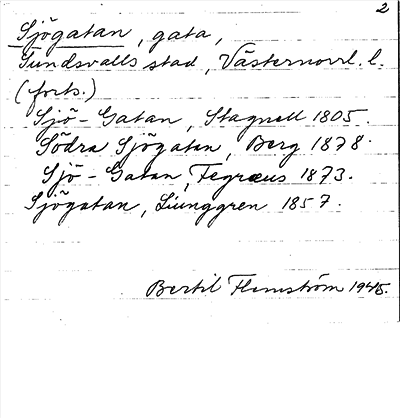 2
Sjögatan, gata,
Sundsvalls stad, Västernorrl. l.
(forts.)
Sjö-Gatan, Stagnell 1805.
Södra Sjögatan, Berg 1878.
Sjö-Gatan, Tegræus 1873.
Sjögatan, Ljunggren 1857.
Bertil Flemström 1945.